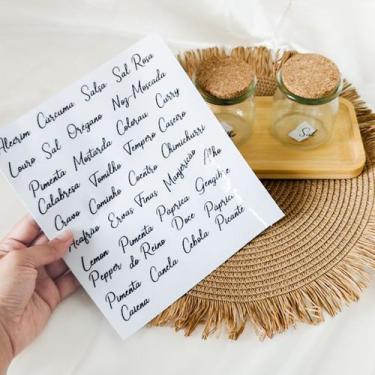 Alecrim Cúrcuma Salsa Sal Rosa
Louro Sal Oregano Noz Moscada
Pimenta Mostarda Colorau Curry
Calabresa Tomilho Tempero Caseiro
Cravo Cominho Coentro Chimichurri
Açafrão Ervas Finas Manjericão Alho
Lemon Pimenta Páprica Gengibre
Pepper do Reino Doce Páprica
Pimenta Canela Cebola Picante
Caiena